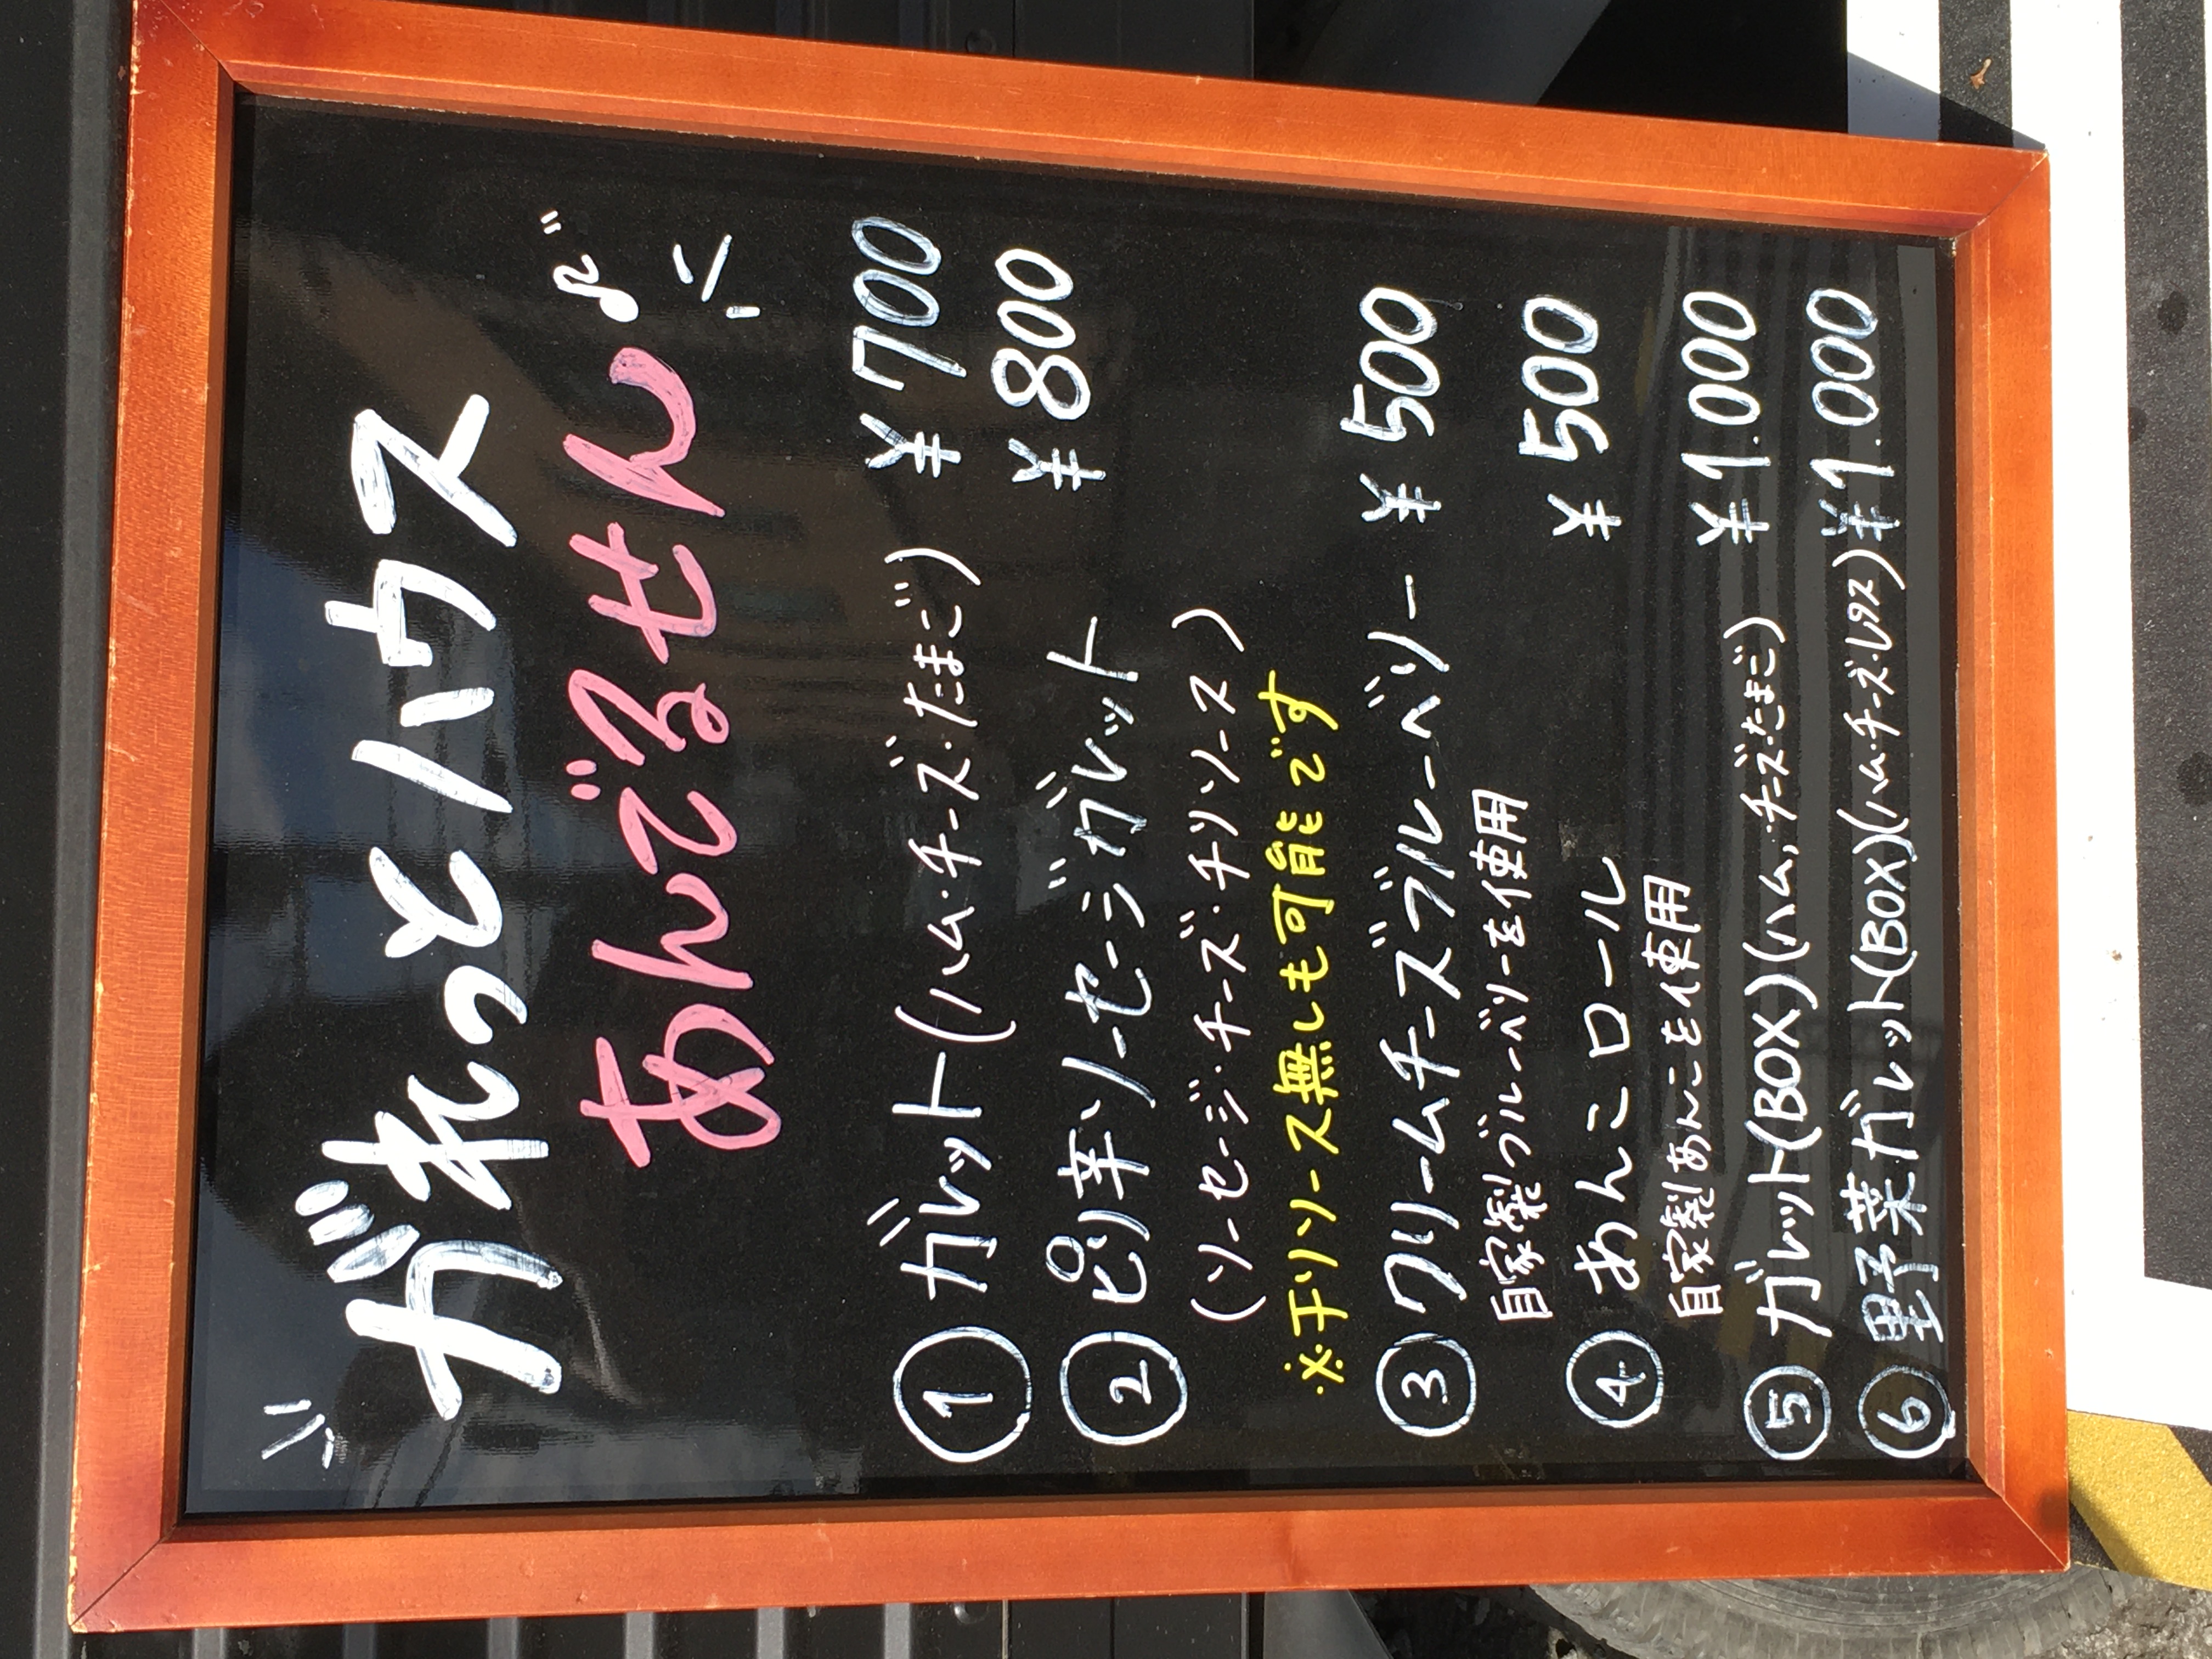 がれっとハウス
あんでるせん
① ガレット(ハム・チーズ・たまご) ¥700
② ピリ辛ソーセージガレット ¥800
(ソーセージ・チーズ・チリソース)
※チリソース無しも可能です
③ クリームチーズブルーベリー ¥500
自家製ブルーベリーを使用
④ あんこロール ¥500
自家製あんこを使用
⑤ ガレット(BOX)(ハム,チーズ・たまご) ¥1.000
⑥ 野菜ガレット(BOX)(ハム・チーズ・レタス) ¥1.000